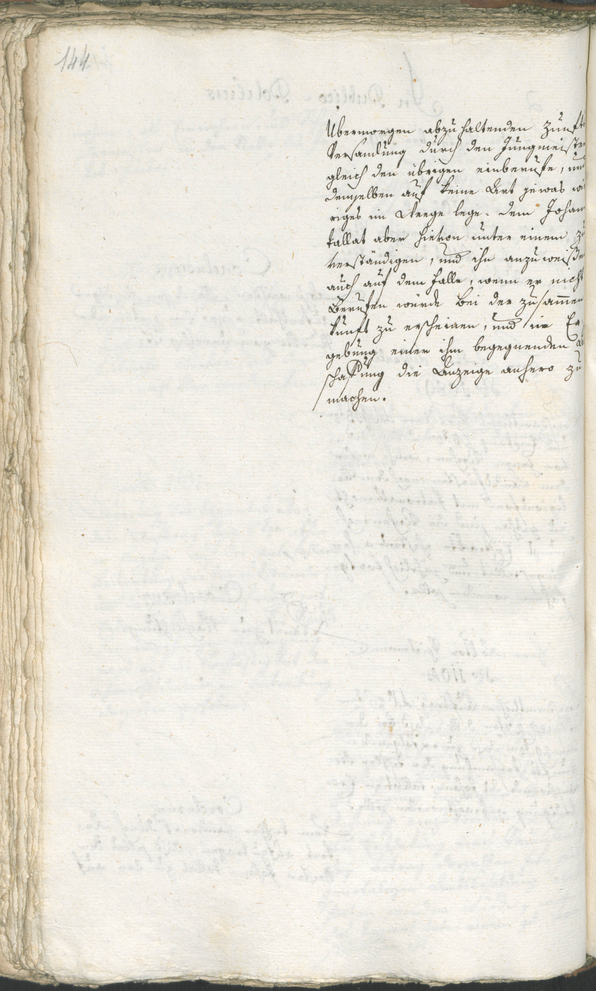 144
Übermorgen abzuhaltenden Zunft
Versamlung durch den Jungmeister
gleich den übrigen einberufe, und
demselben auf keine Art jewas wi
riges im Weege lege. dem Johan
Kallat aber hievon unter einem zu
verständigen, und ihn anzuweisen
auch auf dem falle, wenn er nicht
berufen würde bei der zusammen
kunft zu erscheinen, und in Er
gebung einer ihm begegnenden Ab
schaffung die Anzeige anhero zu
machen.